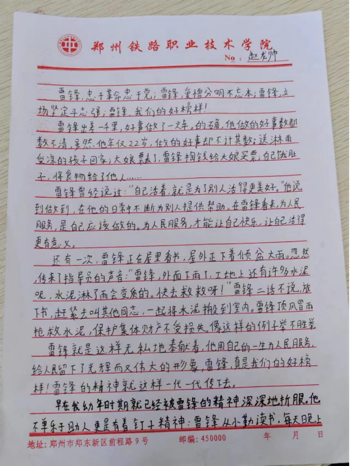 郑州铁路职业技术学院
No: 赵老师
雷锋,忠于革命忠于党;雷锋,爱憎分明不忘本;雷锋,立
场坚定斗志强;雷锋,我们的好榜样!
雷锋出差一千里,好事做了一火车。的确,他做的好事数都
数不清,虽然,他年仅22岁,做的好事却不计其数:送淋雨
受冻的孩子回家;大娘票丢了,雷锋掏钱给大娘买票,自己饿肚
子,将食物给了他人……
雷锋曾经说过:“自己活着,就是为了别人活得更美好。”他说
到做到,在他的日常中不断为别人提供帮助。在雷锋看来,为人民
服务,是自己应该做的,为人民服务,才能让自己快乐,让自己活得
更有意义。
还有一次,雷锋正在屋里看书,屋外正下着倾盆大雨。忽然
传来了指导员的声音:“雷锋,外面下雨了,工地上还有许多水泥
呢,水泥淋了雨会变质的。快去救救呀!”雷锋二话不说,放
下书,赶紧去叫其他同志,一起将水泥搬到室内。雷锋顶风冒雨
抢救水泥,保护集体财产不受损失。像这样的例子举不胜举
雷锋就是这样无私地奉献着,他用自己的一生为人民服务,
给人民留下了无锋而又伟大的形象。雷锋,真是我们的好榜
样!雷锋的精神就这样一代一代传下去。
早在我幼年时期就已经被雷锋的精神深深地折服,他
不单乐于助人更是有着钉子精神:雷锋从小勤读书,每天晚上
地址:郑州市郑东新区前程路9号 邮编:450000 年 月 日